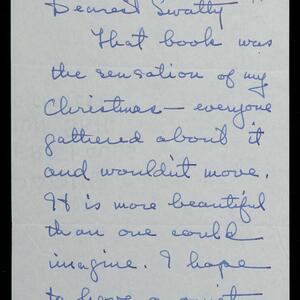 Dearest Swatty
That book was
the sensation of my
Christmas — everyone
gathered about it
and wouldn't move.
It is more beautiful
than one could
imagine. I hope
to have a quiet